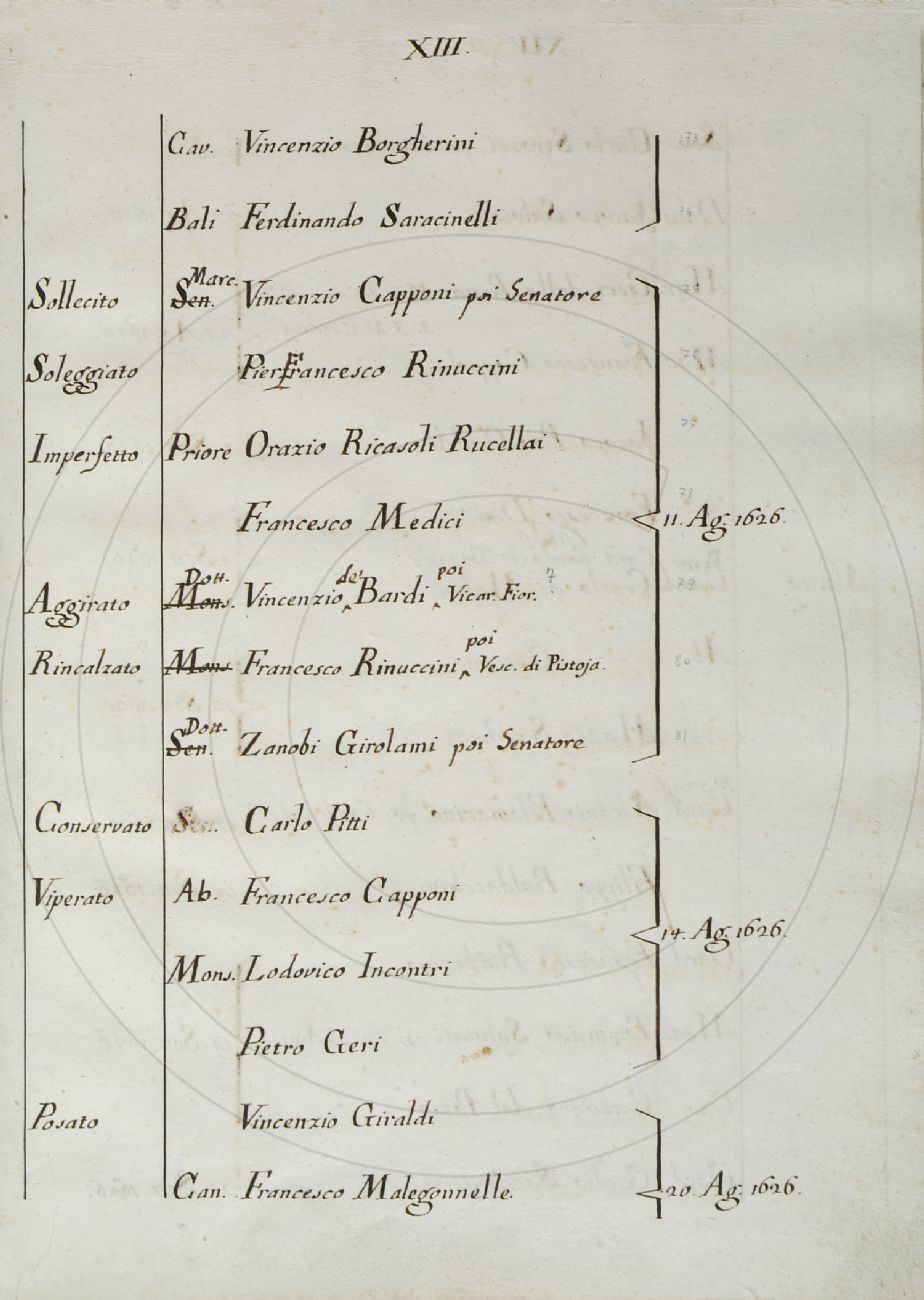 XIII.
Cav. Vincenzio Borgherini
Bali Ferdinando Saracinelli
Sollecito Sen. Marc. Vincenzio Capponi poi Senatore
Soleggiato PierFrancesco Rinuccini
Imperfetto Priore Orazio Ricasoli Rucellai
Francesco Medici 11. Ag. 1626.
Aggirato Mons. Dott. Vincenzio de' Bardi poi Vicar. Fior.
Rincalzato Mons Francesco Rinuccini poi Vesc. di Pistoja.
Sen. Dott. Zanobi Girolami poi Senatore
Conservato Sen. Carlo Pitti
Viperato Ab. Francesco Capponi
14. Ag. 1626.
Mons. Lodovico Incontri
Pietro Geri
Posato Vincenzio Giraldi
Can. Francesco Malegonnelle. 20. Ag. 1626.